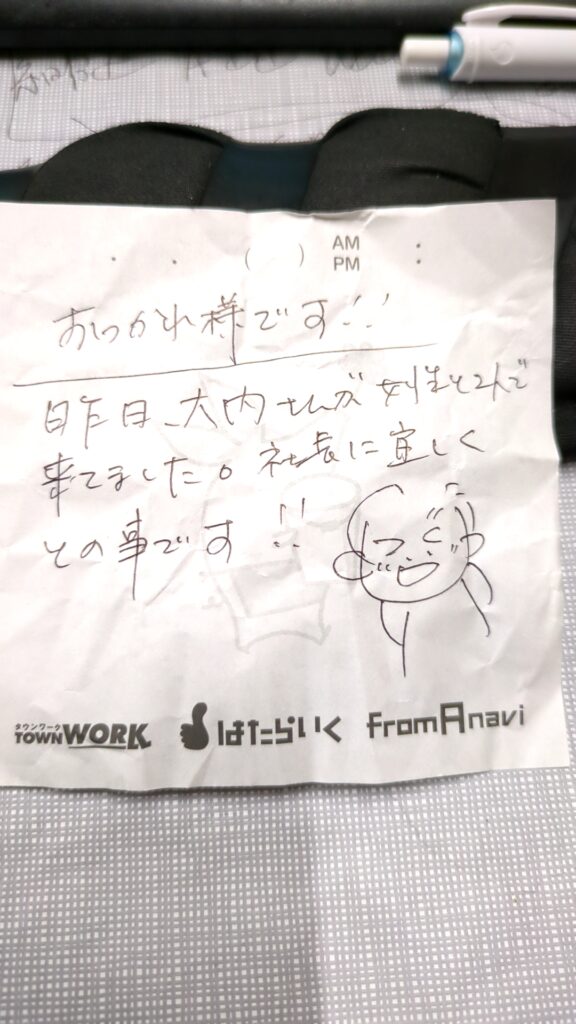 ( ) AM
PM :
おつかれ様です!!
昨日、大内さんが女性と2人で
来てました。社長に宜しく
との事です!!
タウンワーク
TOWNWORK はたらいく fromAnavi